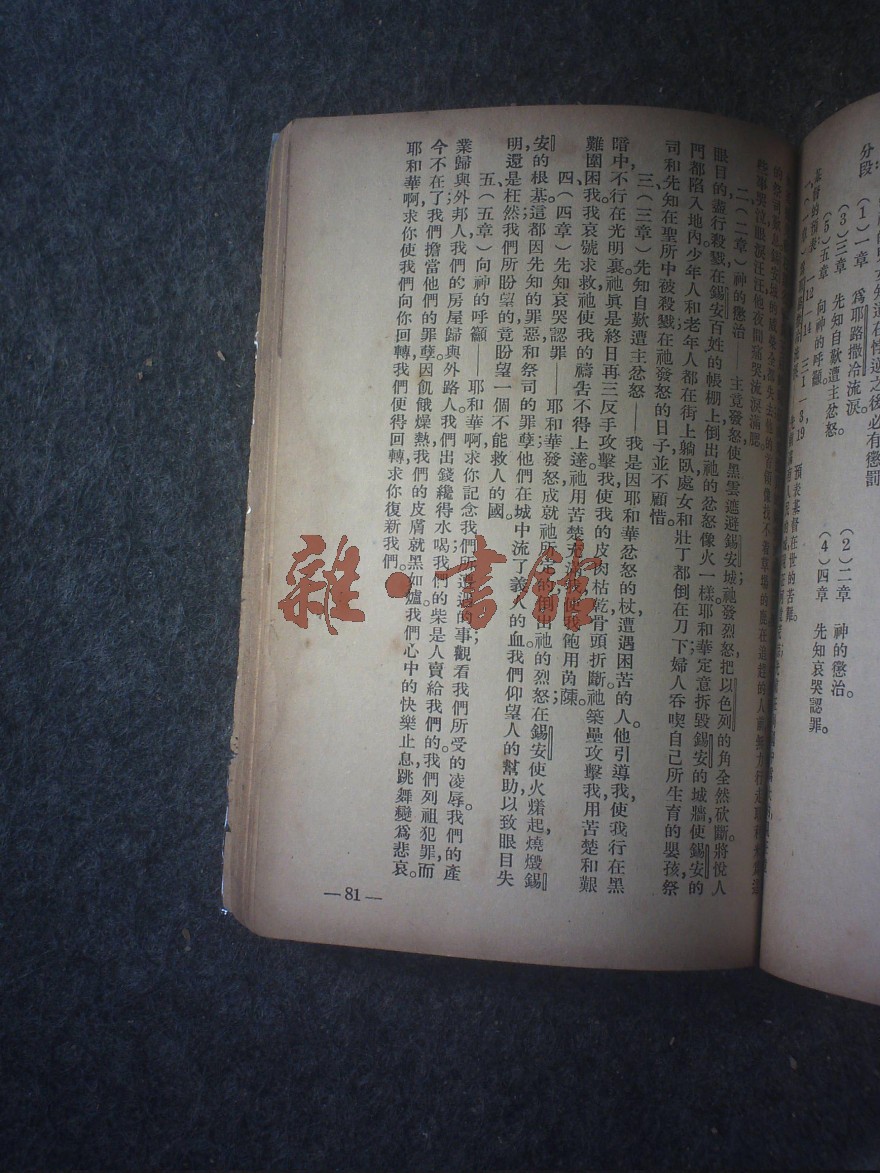 分段：
（1）一章　爲耶路撒冷流淚。
（2）二章　神的懲治。
（3）三章　先知自歎遭主忿怒。
（4）四章　先知哀哭認罪。
（5）五章　向神的呼籲。
些事哭泣眼淚汪汪他夜間痛哭流淚滿腮。
二、（二章）神的懲治——主竟發怒使黑雲遮避錫安城祂發烈怒，把以色列的角全然砍斷。將悅人
眼目的盡行殺戮在錫安百姓的帳棚上倒出祂的忿怒像火一樣耶和華定意拆毀錫安的城牆，使錫安的
門都陷入地內。少年人和老年人都在街上躺臥處女和壯丁都倒在刀下；婦人吞喫自己所生育的嬰孩，祭
司和先知在聖所中被殺戮在祂發怒的日子並不顧惜。
三、（三章）先知自歎遭主忿怒——我是因耶和華忿怒的杖，遭遇困苦的人。他引導我，使我行在黑
暗中不行在光明裏。祂眞是終日再三反手攻擊我使我的皮肉枯乾，骨頭折斷。祂築壘攻擊我，用苦楚和艱
難圍困我。我哀號求救祂使我的禱告不得上達。祂用苦楚充滿我，使我飽用茵蔯。
四、（四章）先知哀哭認罪——耶和華發怒成就祂所定的，倒出祂的烈怒；在錫安使火㸅起，燒燬錫
安的根基。這都因先知的罪惡和祭司的罪孽；他們在城中流了義人的血。我們仰望人的幫助，以致眼目失
明，還是枉然；我們所盼望的，竟盼望一個不能救人的國。
五、（五章）向神的呼籲——耶和華啊，求你記念我們所遭遇的事，觀看我們所受的凌辱。我們的產
業歸與外邦人，我們的房屋歸與外路人。我們出錢纔得水喝；我們的柴是人賣給我們的。我們列祖犯罪，而
今不在了；我們擔當他們的罪孽。因飢餓燥熱，我們的皮膚就黑如爐。我們心中的快樂止息，跳舞變爲悲哀。
耶和華啊，求你使我們向你回轉，我們便得回轉；求你復新我們。
—81—
雜·書館